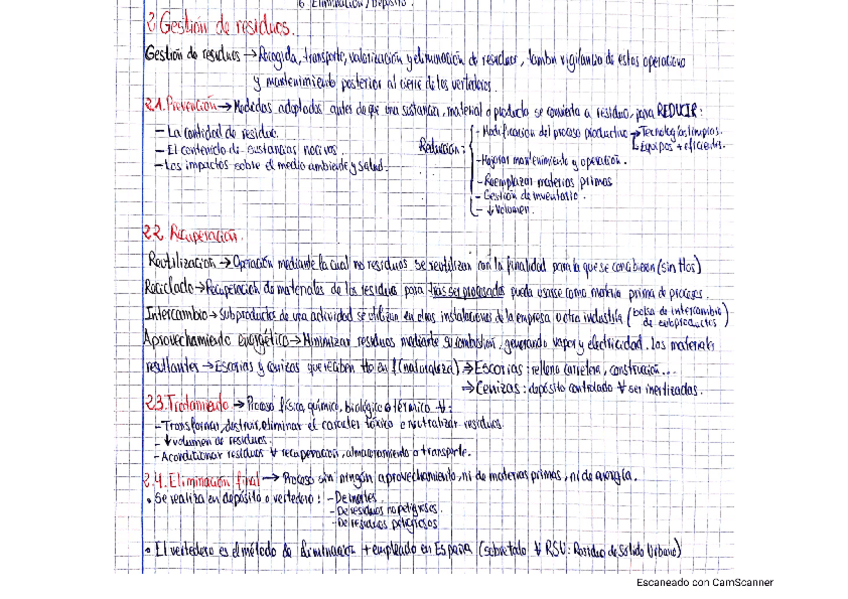 6 Eliminación/Depósito.
2. Gestión de residuos.
Gestión de residuos → Recogida, transporte, valorización y eliminación de residuos, también vigilancia de estas operaciones
y mantenimiento posterior al cierre de los vertederos.
2.1. Prevención → Medidas adoptadas antes de que una sustancia, material o producto se convierta a residuo, para REDUCIR:
- La cantidad de residuo.
- El contenido de sustancias nocivas
- Los impactos sobre el medio ambiente y salud.
Reducción:
- Modificación del proceso productivo → Tecnologías limpias.
Equipos + eficientes.
- Mejorar mantenimiento y operación.
- Reemplazar materias primas
- Gestión de inventario.
- ↓ Volumen.
2.2. Recuperación.
Reutilización → Operación mediante la cual no residuos se reutilizan con la finalidad para la que se concibieron (sin ttos)
Reciclado → Recuperación de materiales de los residuos para tras ser procesados pueda usarse como materia prima de procesos.
Intercambio → Subproductos de una actividad se utilizan en otras instalaciones de la empresa u otra industria (bolsa de intercambio
de subproductos)
Aprovechamiento energético → Minimizar residuos mediante su combustión, generando vapor y electricidad. Los materiales
resultantes → Escorias y cenizas que reciben tto en f(naturaleza) → Escorias: relleno carretera, construcción...
⇒ Cenizas: depósito controlado ∀ ser inertizadas.
2.3. Tratamiento → Proceso física, químico, biológico o térmico ∀:
- Transformar, destruir, eliminar el carácter tóxico o neutralizar residuos.
- ↓ volumen de residuos.
- Acondicionar residuos ∀ recuperación, almacenamiento o transporte.
2.4. Eliminación final → Proceso sin ningún aprovechamiento, ni de materias primas, ni de energía.
• Se realiza en depósito o vertedero: - De inertes.
- De residuos no peligrosos.
- De residuos peligrosos
• El vertedero es el método de eliminación + empleado en España (sobre todo ∀ RSU: Residuo de Sólido Urbano)
Escaneado con CamScanner